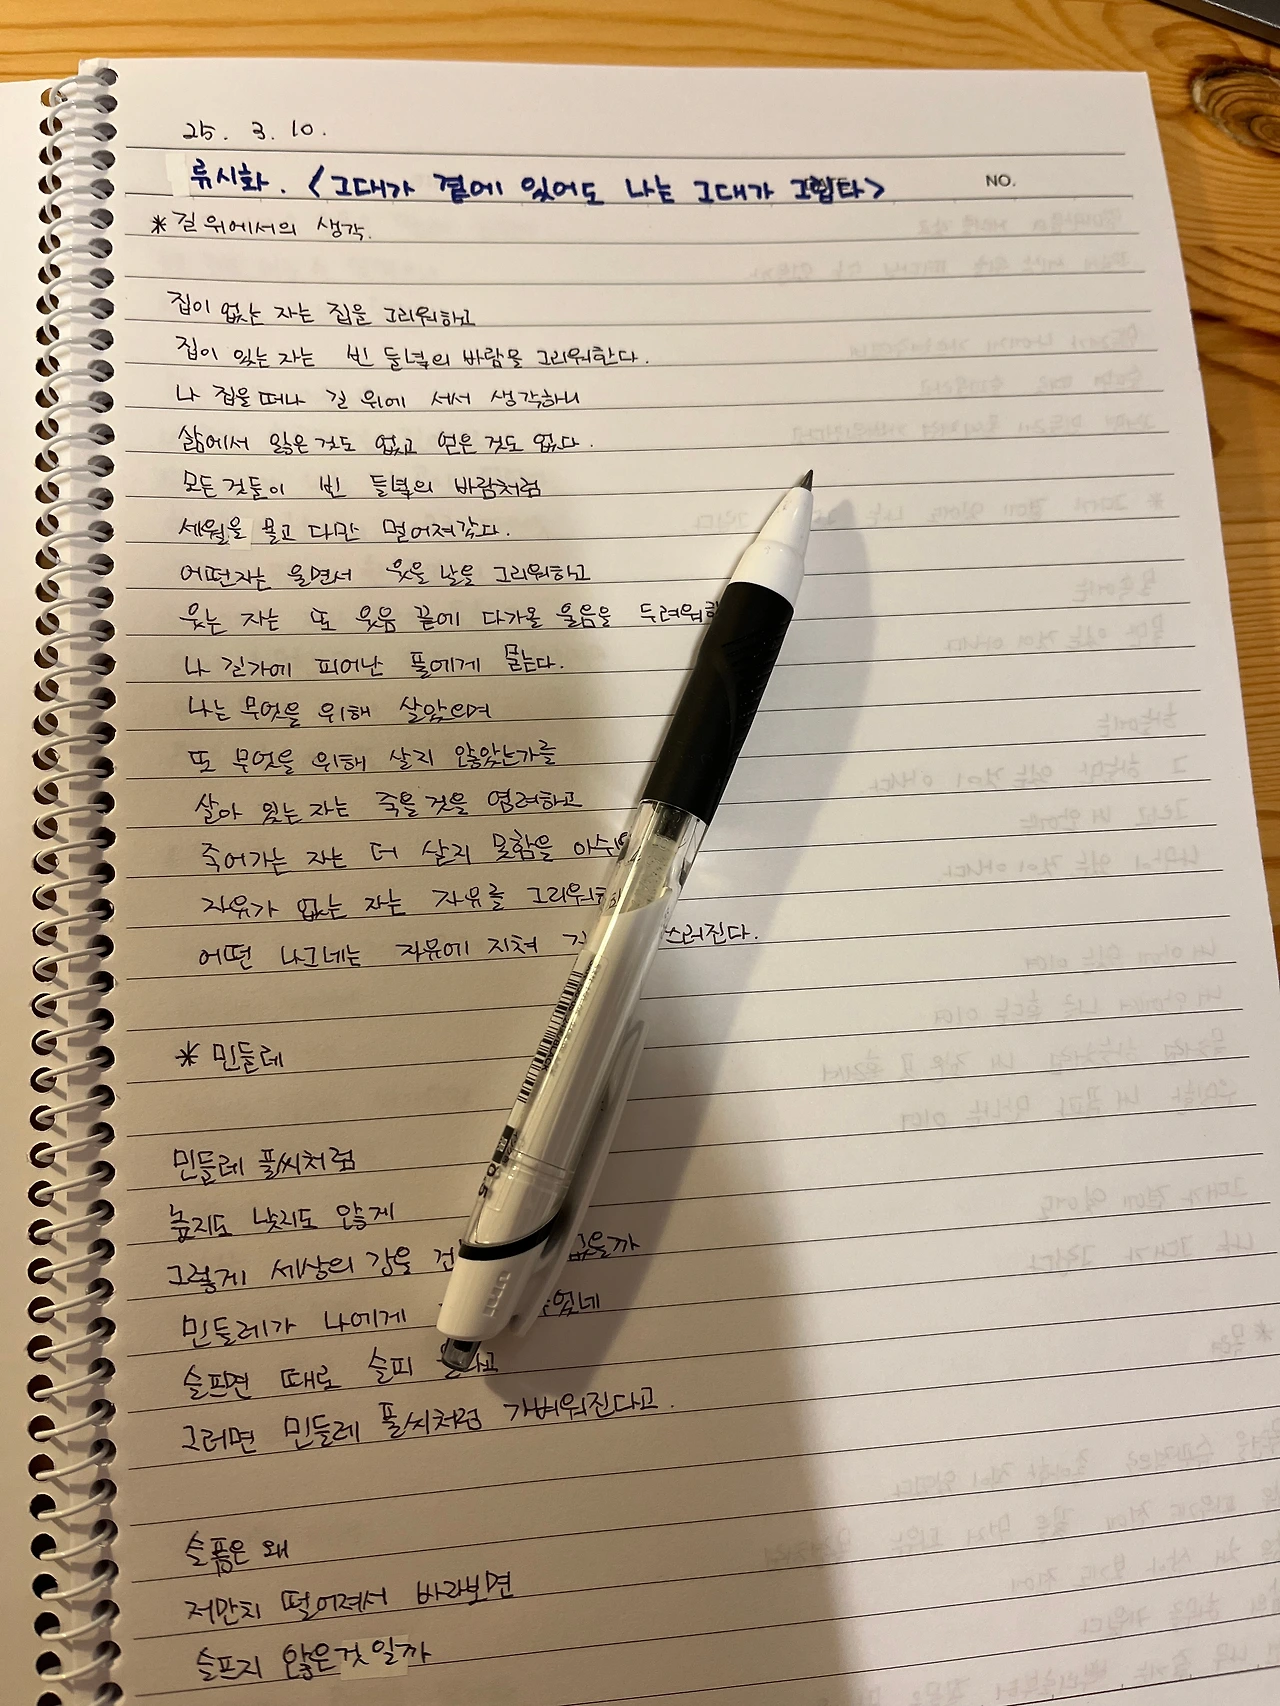 25. 3. 10.
류시화. <그대가 곁에 있어도 나는 그대가 그립다>
NO.
* 길 위에서의 생각.
집이 없는 자는 집을 그리워하고
집이 있는 자는 빈 들녘의 바람을 그리워한다.
나 집을 떠나 길 위에 서서 생각하니
삶에서 잃은 것도 없고 얻은 것도 없다.
모든 것들이 빈 들녘의 바람처럼
세월을 몰고 다만 멀어져갔다.
어떤자는 울면서 웃을 날을 그리워하고
웃는 자는 또 웃음 끝에 다가올 울음을
나 길가에 피어난 풀에게 묻는다.
나는 무엇을 위해 살았으며
또 무엇을 위해 살지 않았는가를
살아 있는 자는 죽을 것을 염려하고
죽어가는 자는 더 살지 못함을
자유가 없는 자는 자유를
어떤 나그네는 자유에 지쳐 스러진다.
* 민들레
민들레 풀씨처럼
높지도 낮지도 않게
그렇게 세상의 강을 없을까
민들레가 나에게
슬프면 때로 슬피
그러면 민들레 풀씨처럼 가벼워진다고.
슬픔은 왜
저만치 떨어져서 바라보면
슬프지 않은것일까
0.5